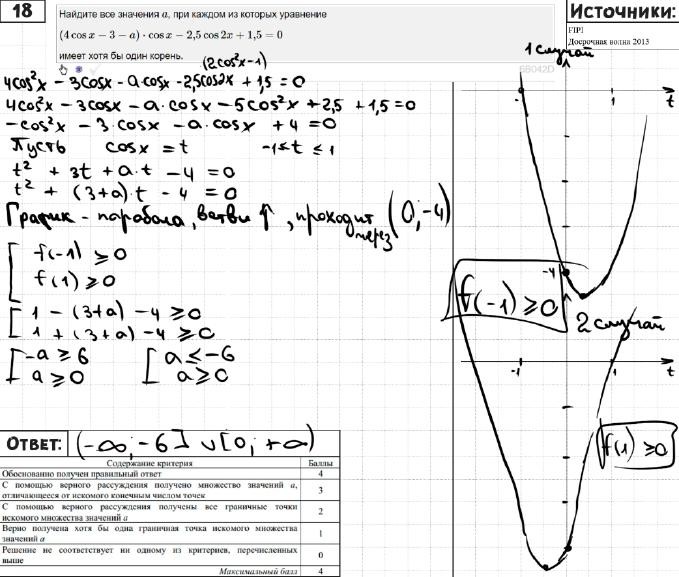 18
Найдите все значения a, при каждом из которых уравнение
(4 cos x − 3 − a) · cos x − 2,5 cos 2x + 1,5 = 0
имеет хотя бы один корень.
6B042D
Источники:
FIPI
Досрочная волна 2013
(2cos²x-1)
4cos²x - 3cosx - a·cosx - 2,5cos2x + 1,5 = 0
4cos²x - 3cosx - a·cosx - 5cos²x + 2,5 + 1,5 = 0
-cos²x - 3·cosx - a·cosx + 4 = 0
Пусть cosx = t -1 ≤ t ≤ 1
t² + 3t + a·t - 4 = 0
t² + (3+a)·t - 4 = 0
График - парабола, ветви ↑, проходит через (0; -4)
f(-1) ≥ 0
f(1) ≥ 0
1 - (3+a) - 4 ≥ 0
1 + (3+a) - 4 ≥ 0
-a ≥ 6 a ≤ -6
a ≥ 0 a ≥ 0
1 случай
-1 1 t
-4
f(-1) ≥ 0
2 случай
-1 1 t
f(1) ≥ 0
Ответ: (-∞; -6] ∪ [0; +∞)
Содержание критерия Баллы
Обоснованно получен правильный ответ 4
С помощью верного рассуждения получено множество значений a,
отличающееся от искомого конечным числом точек 3
С помощью верного рассуждения получены все граничные точки
искомого множества значений a 2
Верно получена хотя бы одна граничная точка искомого множества
значений a 1
Решение не соответствует ни одному из критериев, перечисленных
выше 0
Максимальный балл 4